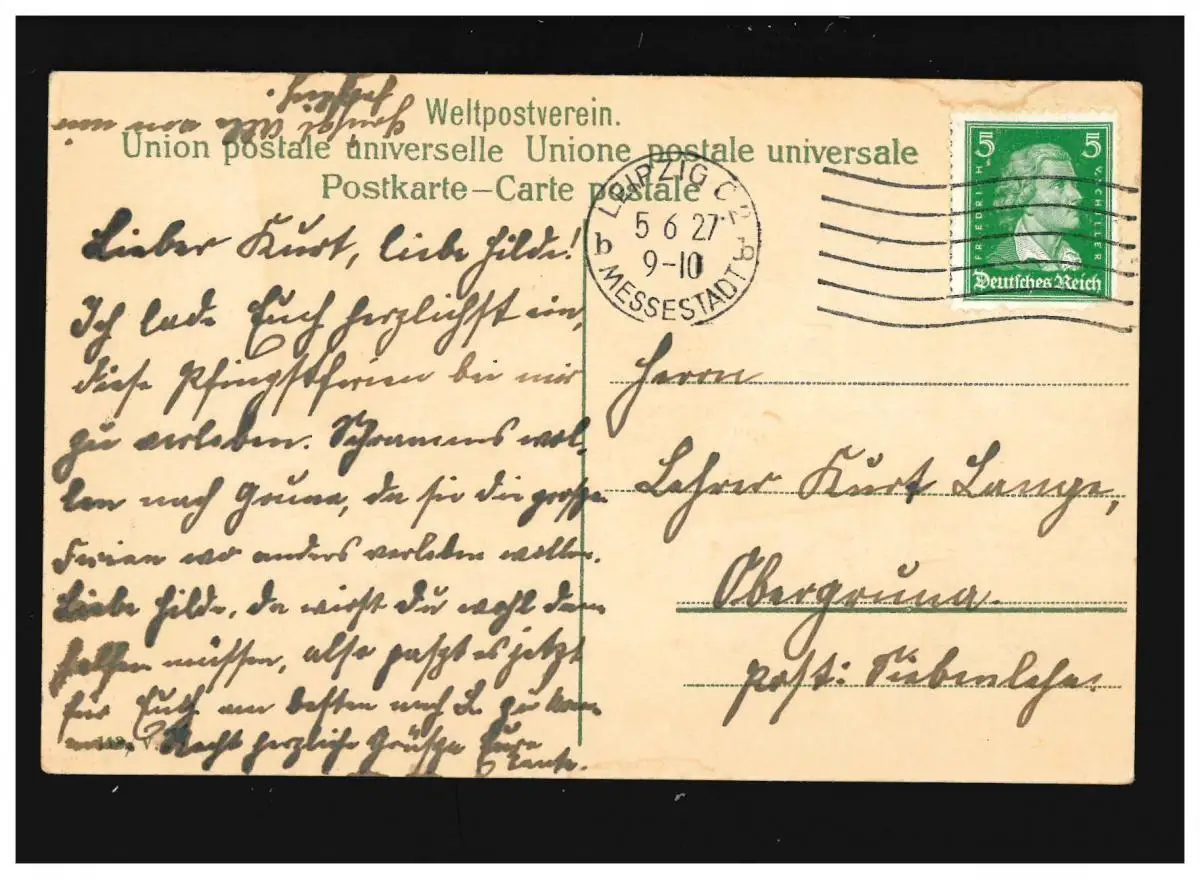 Weltpostverein.
Union postale universelle Unione postale universale
Postkarte – Carte postale
LEIPZIG C 2
5 6 27
9-10
b b
MESSESTADT
5 5
FRIEDRICH V. SCHILLER
Deutsches Reich
Lieber Kurt, liebe Hilde!
Ich lade Euch herzlichst ein,
diese Pfingstferien bei mir
zu verleben. Schramms wol-
len nach Gruna, da sie die großen
Ferien wo anders verleben wollen.
Liebe Hilde, da wirst Du wohl dem
helfen müssen, also paszt es jetzt
für Euch am besten nach L. zu kom-
men. Recht herzliche Grüsze Eure
Tante.
Herrn
Lehrer Kurt Lange,
Obergruna.
Post: Siebenlehn.